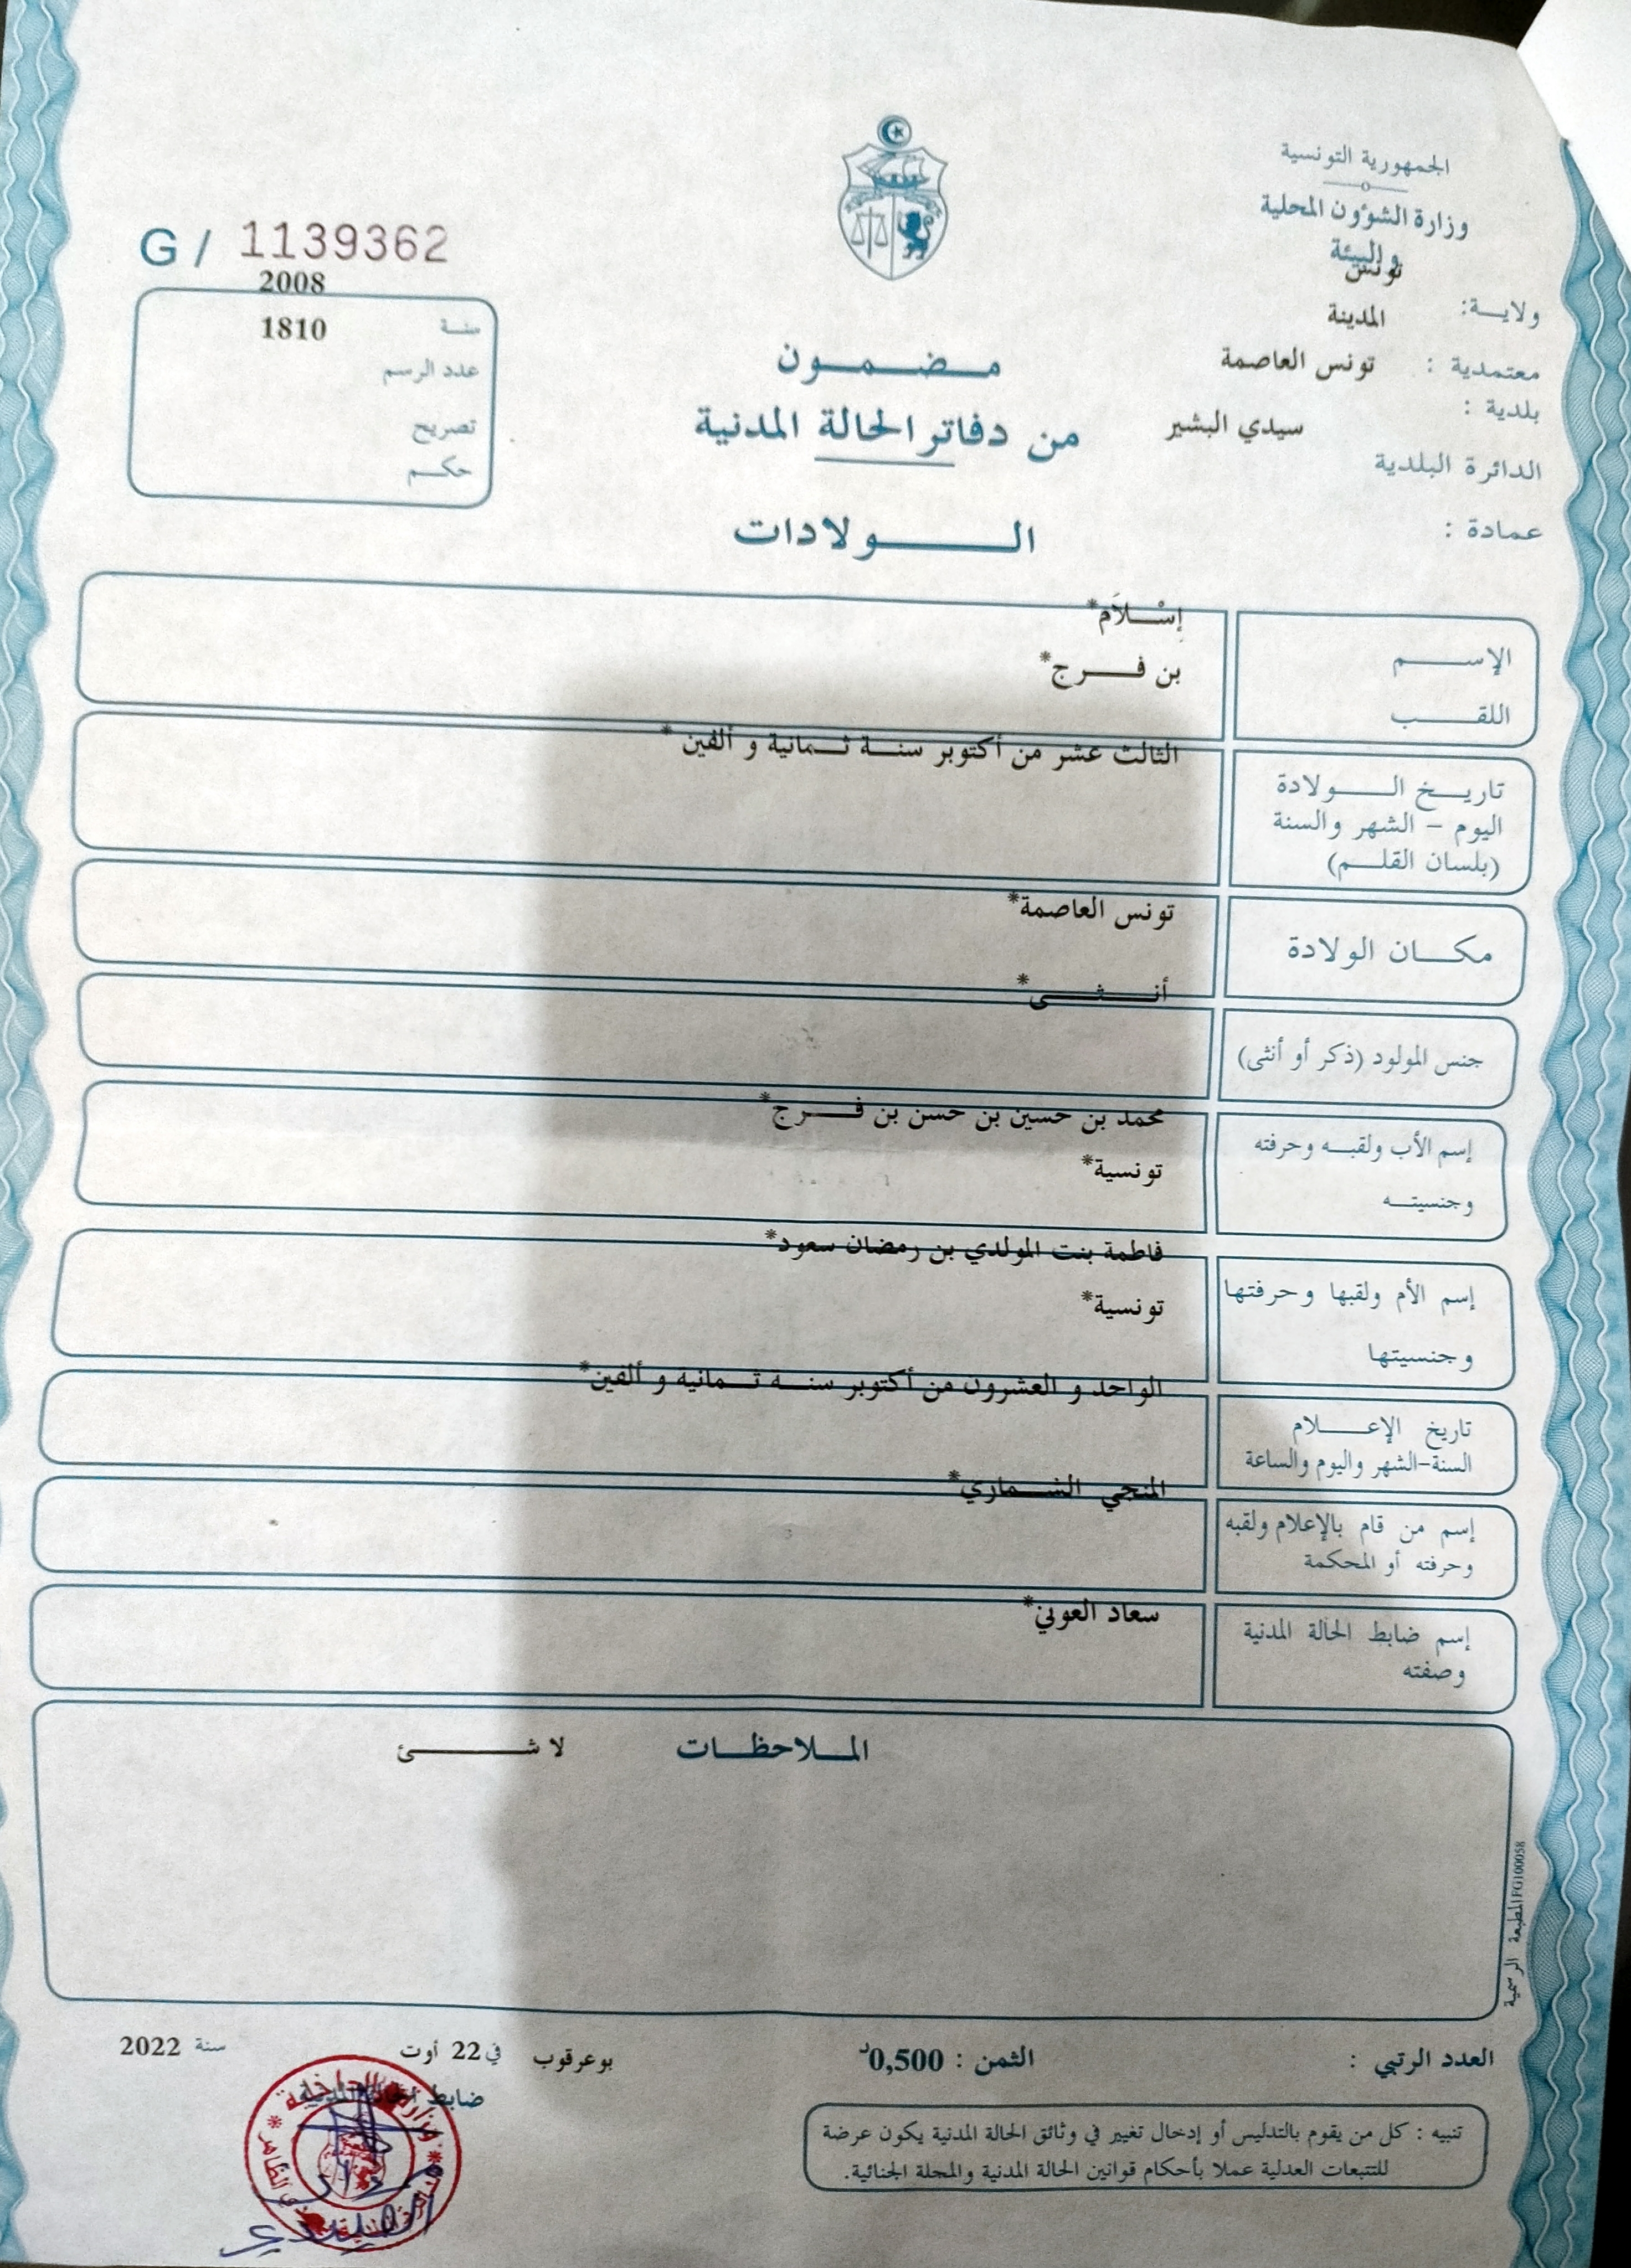 الجمهورية التونسية
وزارة الشؤون المحلية
والبيئة
ولايـــة: تونس
معتمدية : المدينة
بلدية : تونس العاصمة
الدائرة البلدية سيدي البشير
عمادة :
G / 1139362
سنـة 2008
عدد الرسم 1810
تصريح
حكــم
مـضـمـون
من دفاتر الحالة المدنية
الــولادات
الإســـم إسْـلاَم*
اللقـــب بن فــرج*
تاريـخ الـــولادة الثالث عشر من أكتوبر سنـة ثـمانية و ألفين*
اليوم – الشهر والسنة
(بلسان القلـم)
مكــان الولادة تونس العاصمة*
جنس المولود (ذكر أو أنثى) أنــثــى*
إسم الأب ولقبـه وحرفته محمد بن حسين بن حسن بن فــرج*
وجنسيتــه تونسية*
إسم الأم ولقبها وحرفتها فاطمة بنت المولدي بن رمضان سعود*
وجنسيتها تونسية*
تاريخ الإعــلام الواحد و العشرون من أكتوبر سنـة ثـمانية و ألفين*
السنة-الشهر واليوم والساعة
إسم من قام بالإعلام ولقبه المنجي الشـماري*
وحرفته أو المحكمة
إسم ضابط الحالة المدنية سعاد العوني*
وصفته
المـلاحظـات لا شــئ
المطبعة الرسمية FG100058
العدد الرتبي :
الثمن : 0,500د
بوعرقوب في 22 أوت سنة 2022
ضابط الحالة المدنية
تنبيه : كل من يقوم بالتدليس أو إدخال تغيير في وثائق الحالة المدنية يكون عرضة
للتتبعات العدلية عملا بأحكام قوانين الحالة المدنية والمجلة الجنائية.